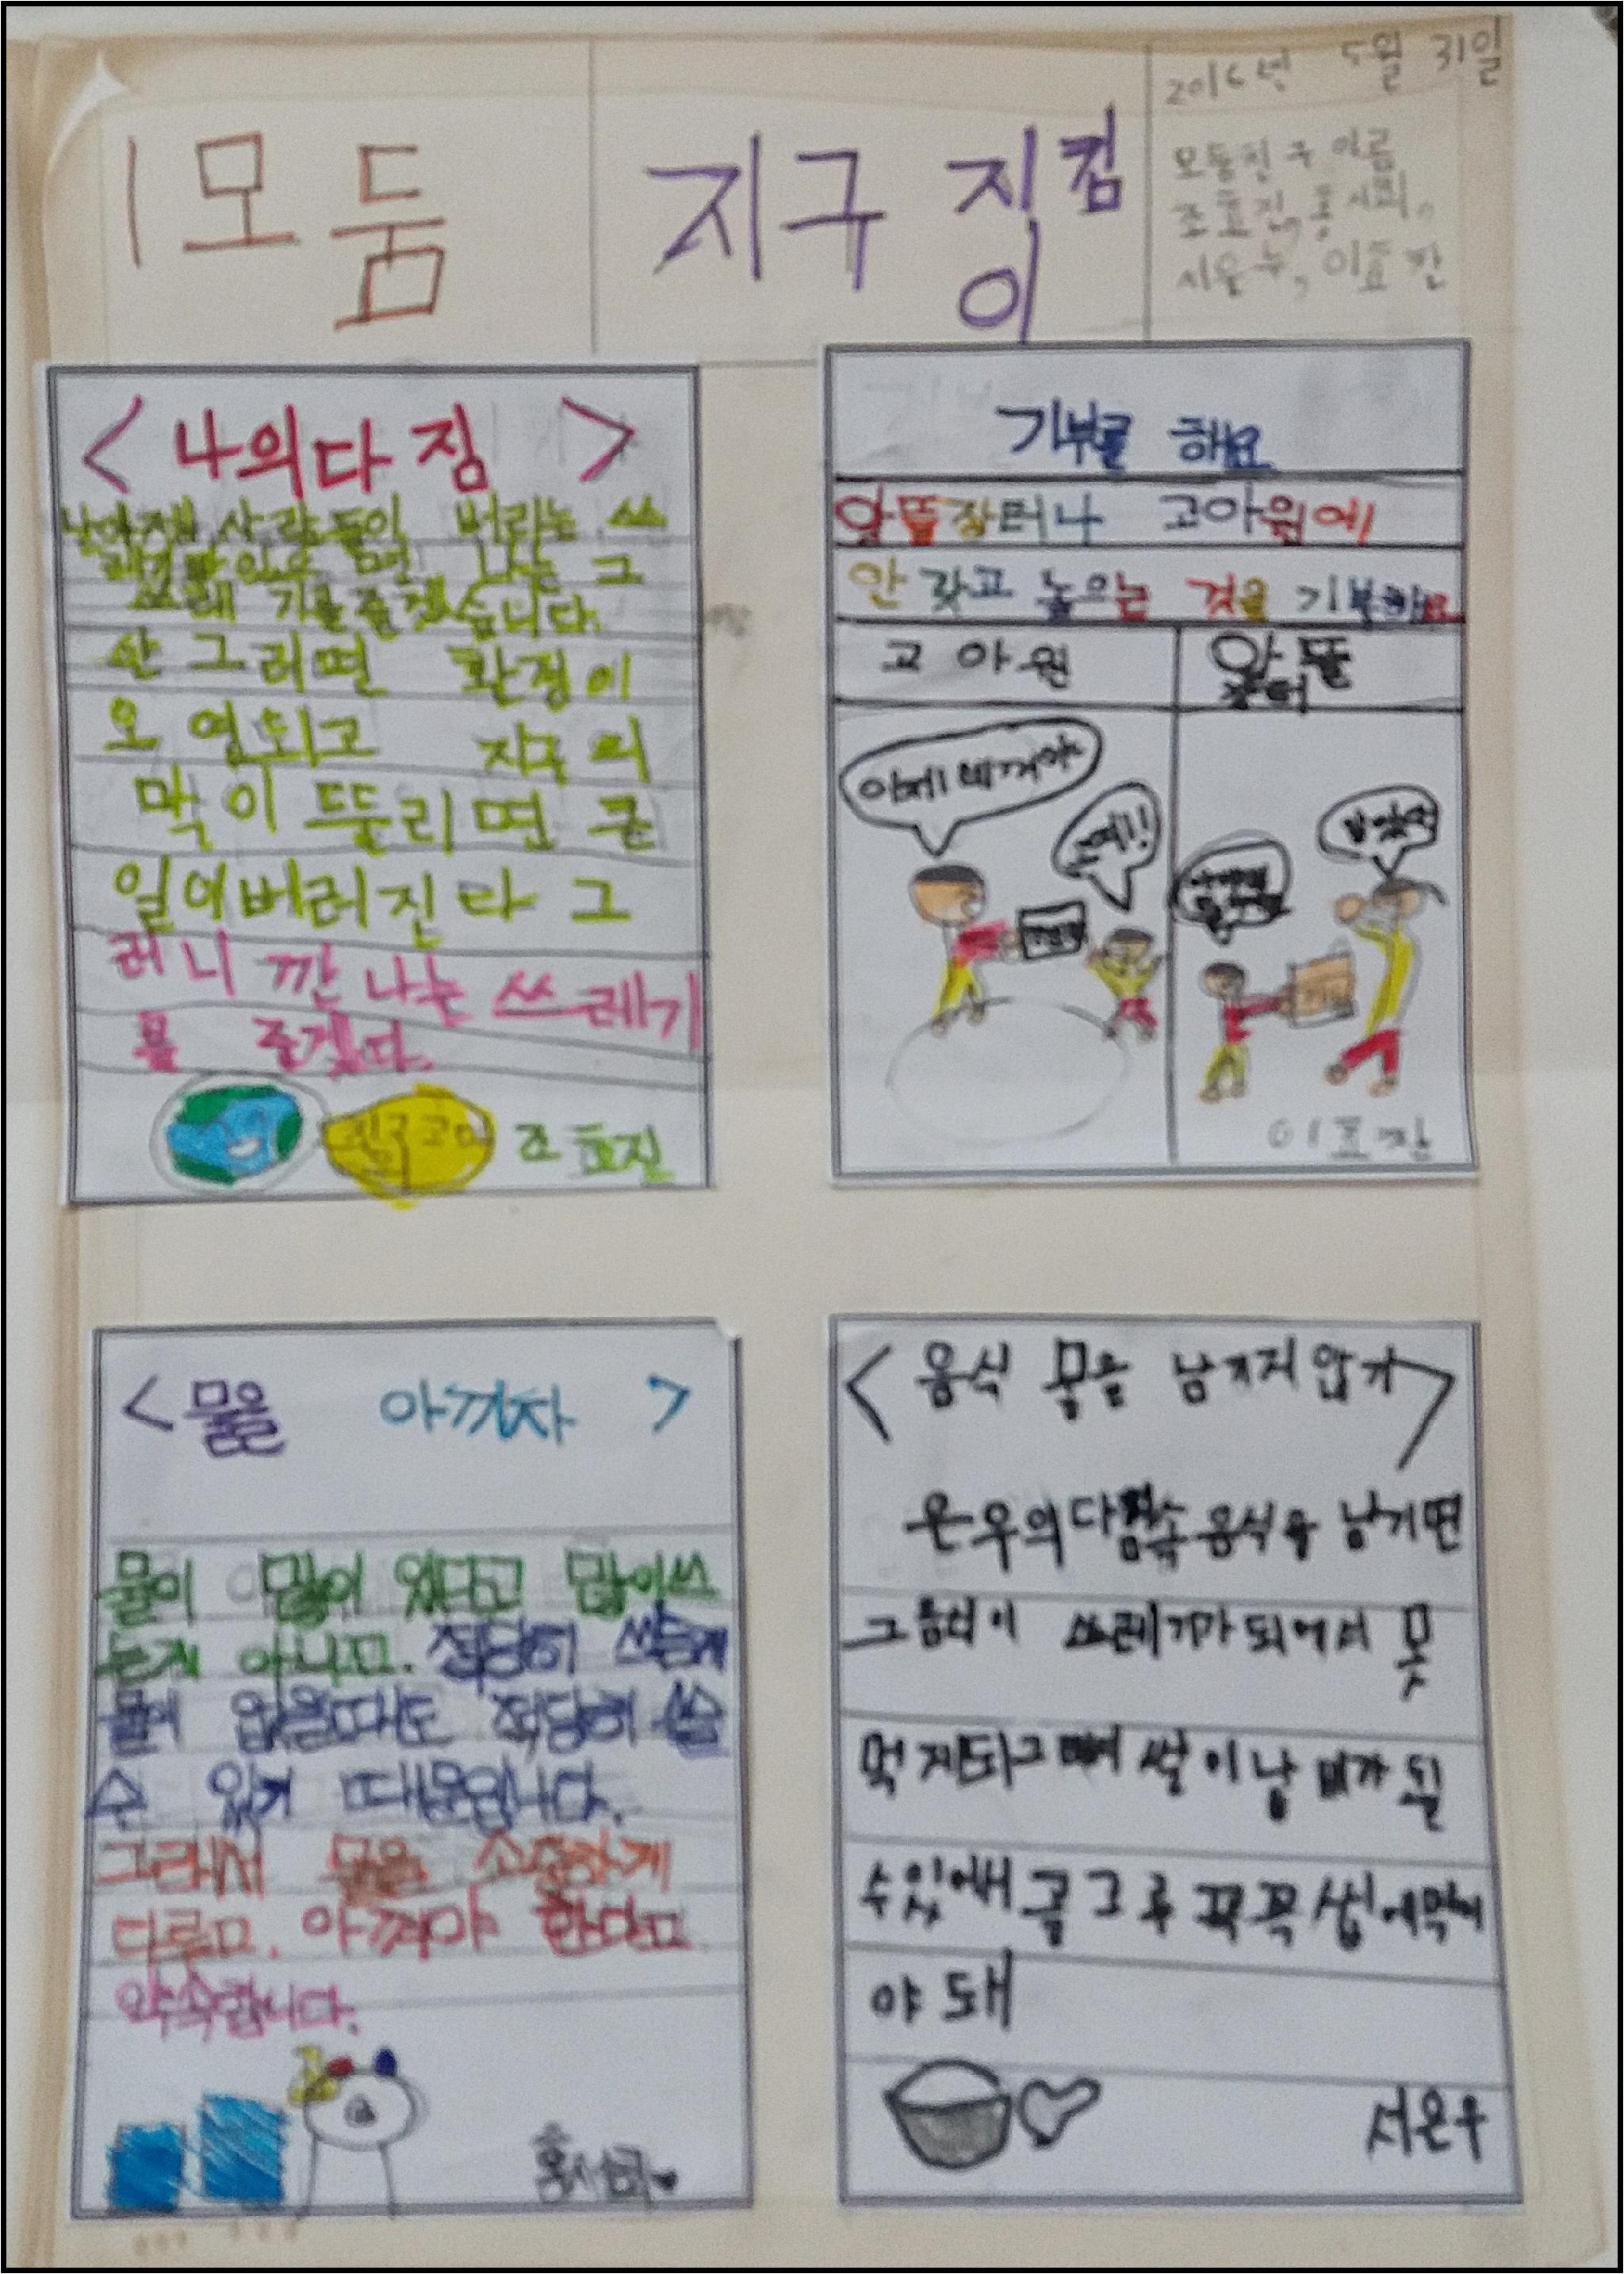 1모둠
지구 지킴이
2016년 5월 31일
모둠친구 이름
조효진, 홍서희,
서은우, 이효찬
<나의다짐>
사람들이 버리는 쓰
나는 그
쓰레기를줍겠습니다.
안그러면 환경이
오염되고 지구의
막이 뚫리면 큰
일이버러진다 그
러니깐 나는 쓰레기
를 줍겠다.
조효진
기부를 해요
알뜰장터나 고아원에
안 갖고 놀으는 것을 기부해요
고아원
알뜰
장터
이제 네꺼야
이효찬
<물을 아끼자>
물이 많이 있다고 많이쓰
는게 아니고. 적당히 쓰는게
물이 없을때도 적당히 쓸
수 있기 때문입니다.
그래서 물을 소중하게
다루고. 아껴야 한다고
약속합니다.
홍서희♥
<음식물을 남기지 압기>
은우의다짐 음식을 남기면
그음식이 쓰레기가되어서 못
먹게되고 쌀이낭비가 될
수있어 골고루 꼭꼭 씹어먹어
야돼
서은우